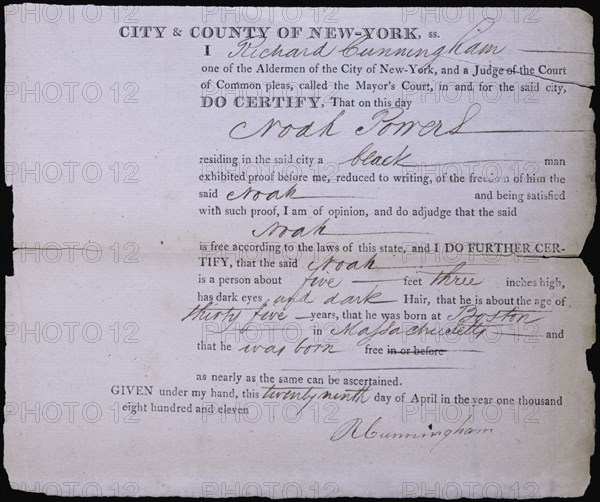 CITY & COUNTY OF NEW-YORK, ss.
I Richard Cunningham
one of the Aldermen of the City of New-York, and a Judge of the Court
of Common pleas, called the Mayor's Court, in and for the said city,
DO CERTIFY, That on this day
Noah Powers
residing in the said city a black man
exhibited proof before me, reduced to writing, of the freedom of him the
said Noah and being satisfied
with such proof, I am of opinion, and do adjudge that the said
Noah
is free according to the laws of this state, and I DO FURTHER CER-
TIFY, that the said Noah
is a person about five feet three inches high,
has dark eyes and dark Hair, that he is about the age of
thirty five years, that he was born at Boston
in Massachusetts and
that he was born free in or before
as nearly as the same can be ascertained.
GIVEN under my hand, this twenty ninth day of April in the year one thousand
eight hundred and eleven
RCunningham
PHOTO 12